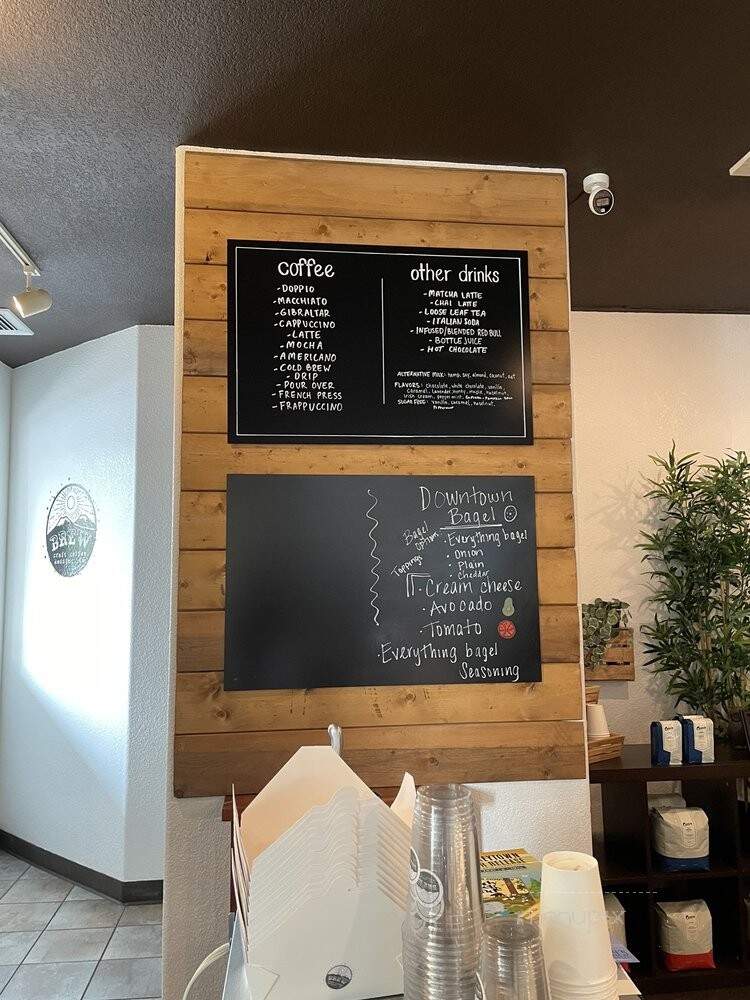 coffee
-DOPPIO
-MACCHIATO
-GIBRALTAR
-CAPPUCCINO
-LATTE
-MOCHA
-AMERICANO
-COLD BREW
-DRIP
-POUR OVER
-FRENCH PRESS
-FRAPPUCCINO
other drinks
-MATCHA LATTE
-CHAI LATTE
-LOOSE LEAF TEA
-ITALIAN SODA
-INFUSED/BLENDED RED BULL
-BOTTLE JUICE
-HOT CHOCOLATE
ALTERNATIVE MILK: hemp, soy, almond, coconut, oat
FLAVORS: chocolate, white chocolate, vanilla,
caramel, lavender, honey, maple, hazelnut,
irish cream, peppermint,
SUGAR FREE: vanilla, caramel, hazelnut,
peppermint
Downtown
Bagel
Bagel
Option:
·Everything bagel
·Onion
·Plain
·Cheddar
Toppings
·Cream cheese
·Avocado
·Tomato
·Everything bagel
Seasoning
BREW
craft coffee